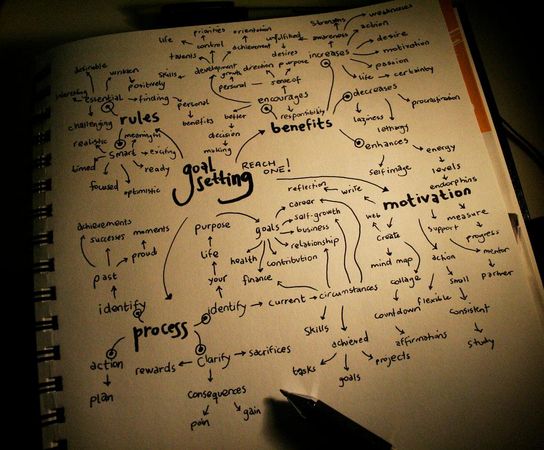 priorities
orientation
strengths
weaknesses
life
control
achievement
unfulfilled
awareness
action
talents
desires
increases
desire
definable
written
skills
development
growth
direction
purpose
motivation
positively
personal
sense of
passion
interesting
essential
finding
personal
encourages
life
certainty
challenging
rules
benefits
better
responsibility
decreases
procrastination
realistic
meaningful
decision
benefits
laziness
lethargy
timed
smart
exciting
making
enhances
energy
ready
goal
setting
REACH
ONE!
self image
levels
focused
optimistic
reflection
write
endorphins
career
motivation
achievements
purpose
self-growth
web
measure
successes
moments
goals
business
create
support
progress
proud
life
health
relationship
mentor
past
contribution
mind map
action
your
finance
collage
small
partner
identify
identify
current
circumstances
countdown
flexible
consistent
process
skills
action
clarify
sacrifices
achieved
affirmations
study
rewards
tasks
projects
plan
consequences
goals
pain
gain